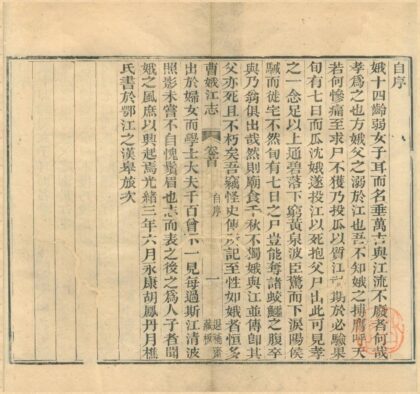 自序
娥十四齡弱女子耳而名垂萬古與江流不廢者何哉
孝爲之也方娥父之溺於江也吾不知娥之搏膺呼天
若何慘痛至求尸不獲乃投瓜以質江期於必驗果
旬有七日而瓜沈娥遂投江以死抱父尸出此可見孝
之一念足以上通碧落下窮黃泉波臣驚而下淚陽侯
駴而徙宅不然旬有七日之尸豈能奪諸蛟鱷之腹卒
與乃翁俱出哉然則廟食千秋不獨娥與江並傳卽其
父亦死且不朽矣吾竊怪史傳所記至性如娥者恒多
曹娥江志 卷首 自序 一 退補齋藏板
出於婦女而學士大夫千百曾不一見每過斯江清波
照影未嘗不自愧鬚眉也志而表之後之爲人子者聞
娥之風庶以興起焉光緒三年六月永康胡鳳丹月樵
氏書於鄂江之漢臯旅次